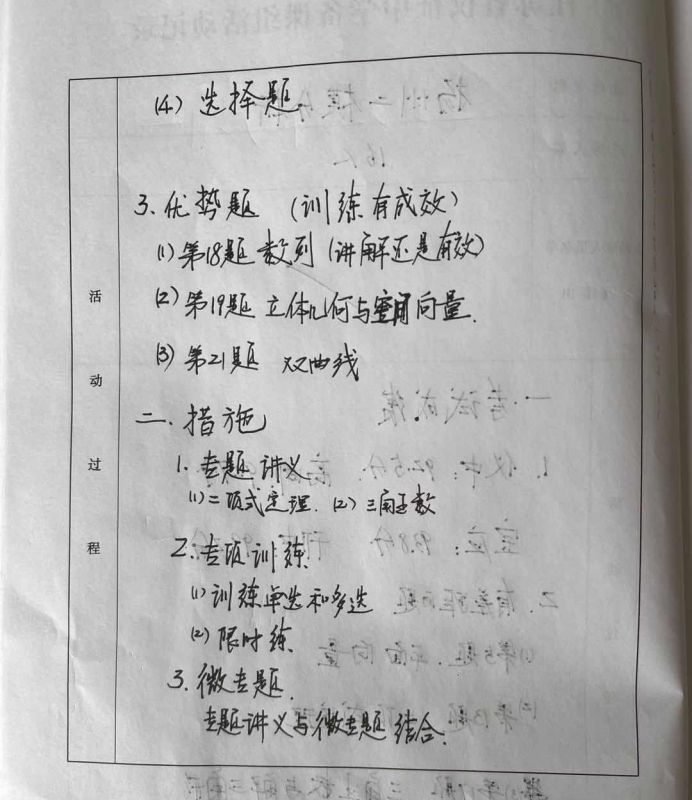 (4) 选择题.
3、优势题 (训练有成效)
(1) 第18题 数列 (讲解还是有效)
(2) 第19题 立体几何与空间向量.
(3) 第21题 双曲线
二、措施
1. 专题讲义
(1) 二项式定理. (2) 三角函数
2. 专项训练.
(1) 训练单选和多选
(2) 限时练.
3. 微专题.
专题讲义与微专题结合.
活
动
过
程